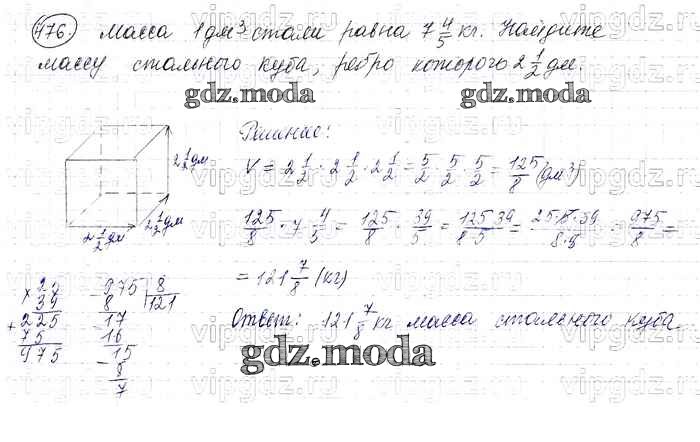 476. Масса 1 дм³ стали равна 7 4/5 кг. Найдите
массу стального куба, ребро которого 2 1/2 дм.
gdz.moda
gdz.moda
Решение:
V = 2 1/2 · 2 1/2 · 2 1/2 = 5/2 · 5/2 · 5/2 = 125/8 (дм³)
2 1/2 дм
2 1/2 дм
2 1/2 дм
125/8 · 7 4/5 = 125/8 · 39/5 = 125·39/8·5 = 25·5·39/8·5 = 975/8 =
= 121 7/8 (кг)
× 25
39
+ 225
75
975
975 | 8
8 | 121
17
16
15
8
7
Ответ: 121 7/8 кг масса стального куба.
gdz.moda
vipgdz.ru